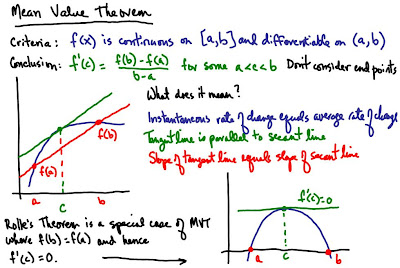 Mean Value Theorem
Criteria: f(x) is continuous on [a,b] and differentiable on (a,b)
Conclusion: f'(c) = f(b)-f(a) / b-a for some a<c<b Don't consider end points
What does it mean?
Instantaneous rate of change equals average rate of change
Tangent line is parallel to secant line
Slope of tangent line equals slope of secant line
f(b)
f(a)
a
c
b
Rolle's Theorem is a special case of MVT
where f(b)=f(a) and hence
f'(c)=0.
f'(c)=0
a
c
b